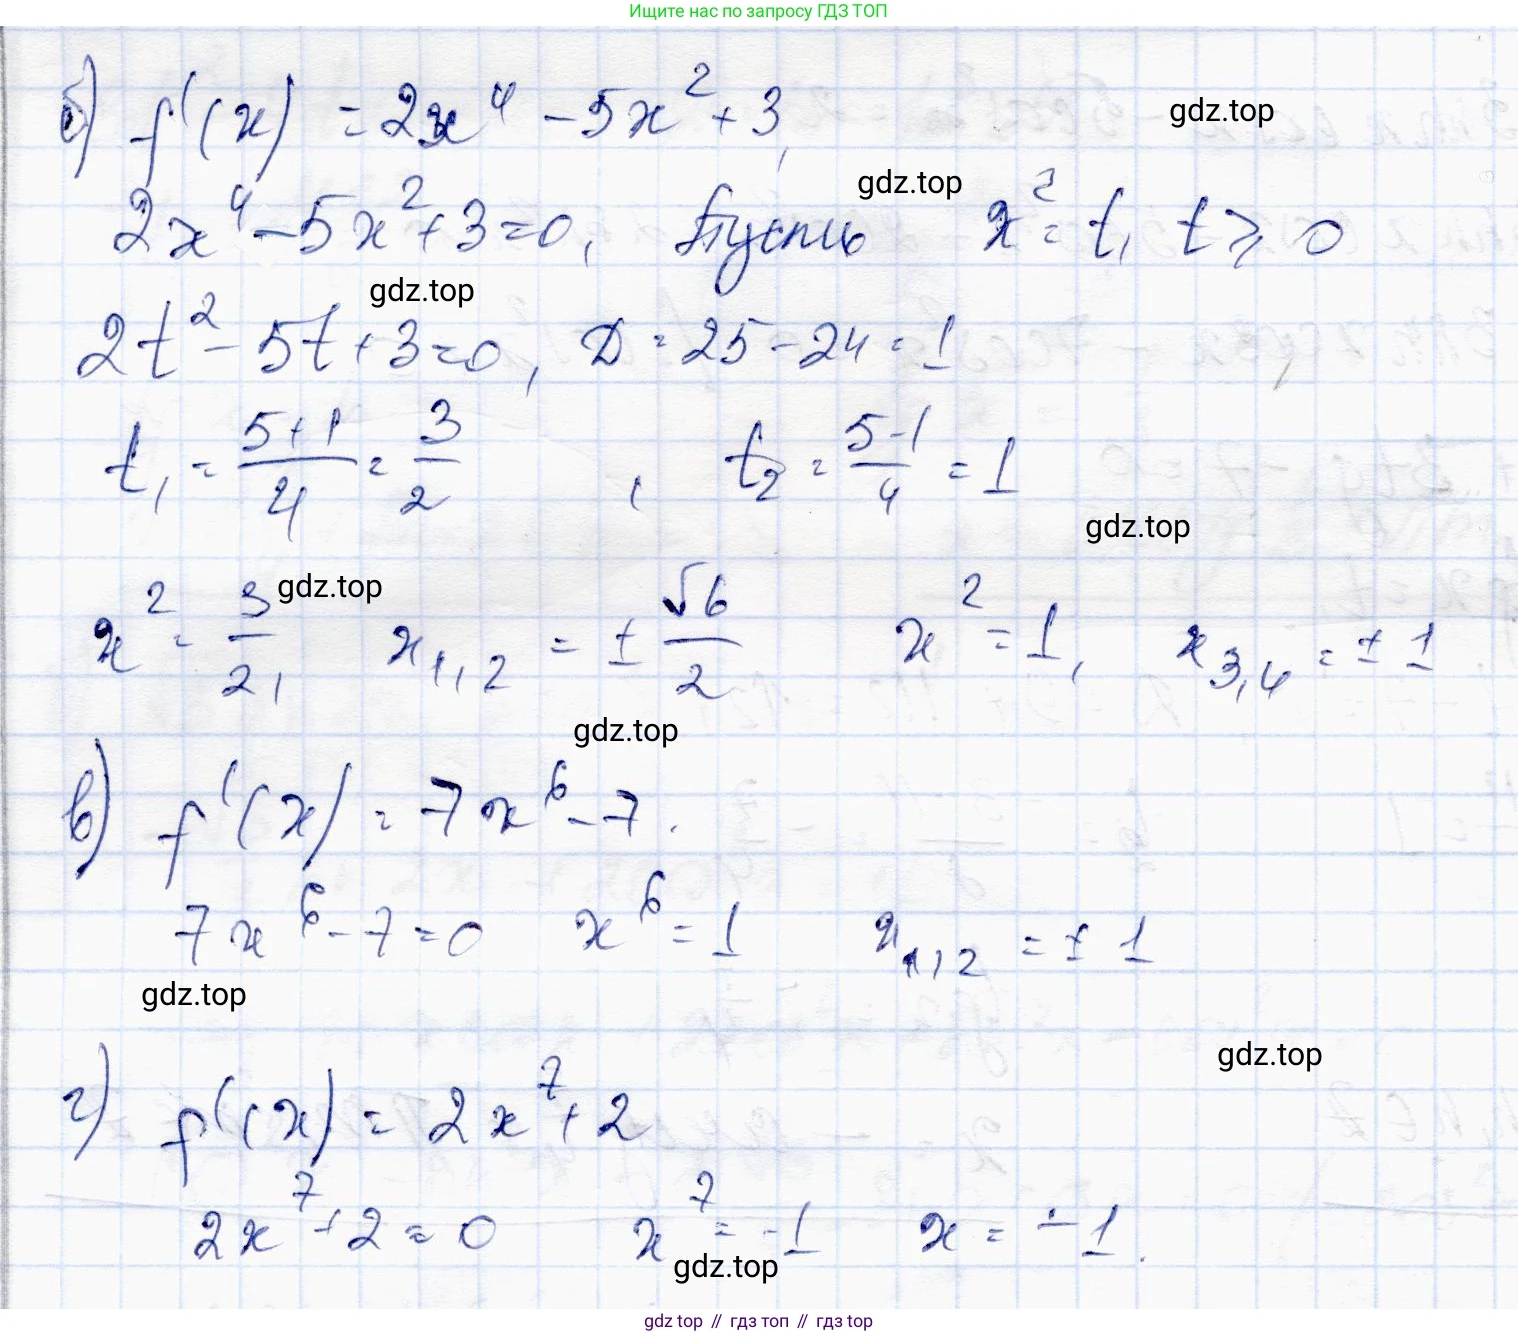 Ищите нас по запросу ГДЗ ТОП
б) f'(x) = 2x⁴ - 5x² + 3,
gdz.top
2x⁴ - 5x² + 3 = 0, Пусть x² = t, t ⩾ 0
gdz.top
gdz.top
2t² - 5t + 3 = 0, D = 25 - 24 = 1
t₁ = (5+1)/4 = 3/2 , t₂ = (5-1)/4 = 1
gdz.top
gdz.top
x² = 3/2, x₁,₂ = ± √6/2 x² = 1, x₃,₄ = ± 1
gdz.top
в) f'(x) = 7x⁶ - 7.
7x⁶ - 7 = 0 x⁶ = 1 x₁,₂ = ± 1
gdz.top
gdz.top
г) f'(x) = 2x⁷ + 2
2x⁷ + 2 = 0 x⁷ = -1 x = -1.
gdz.top
gdz top // гдз топ // гдз top